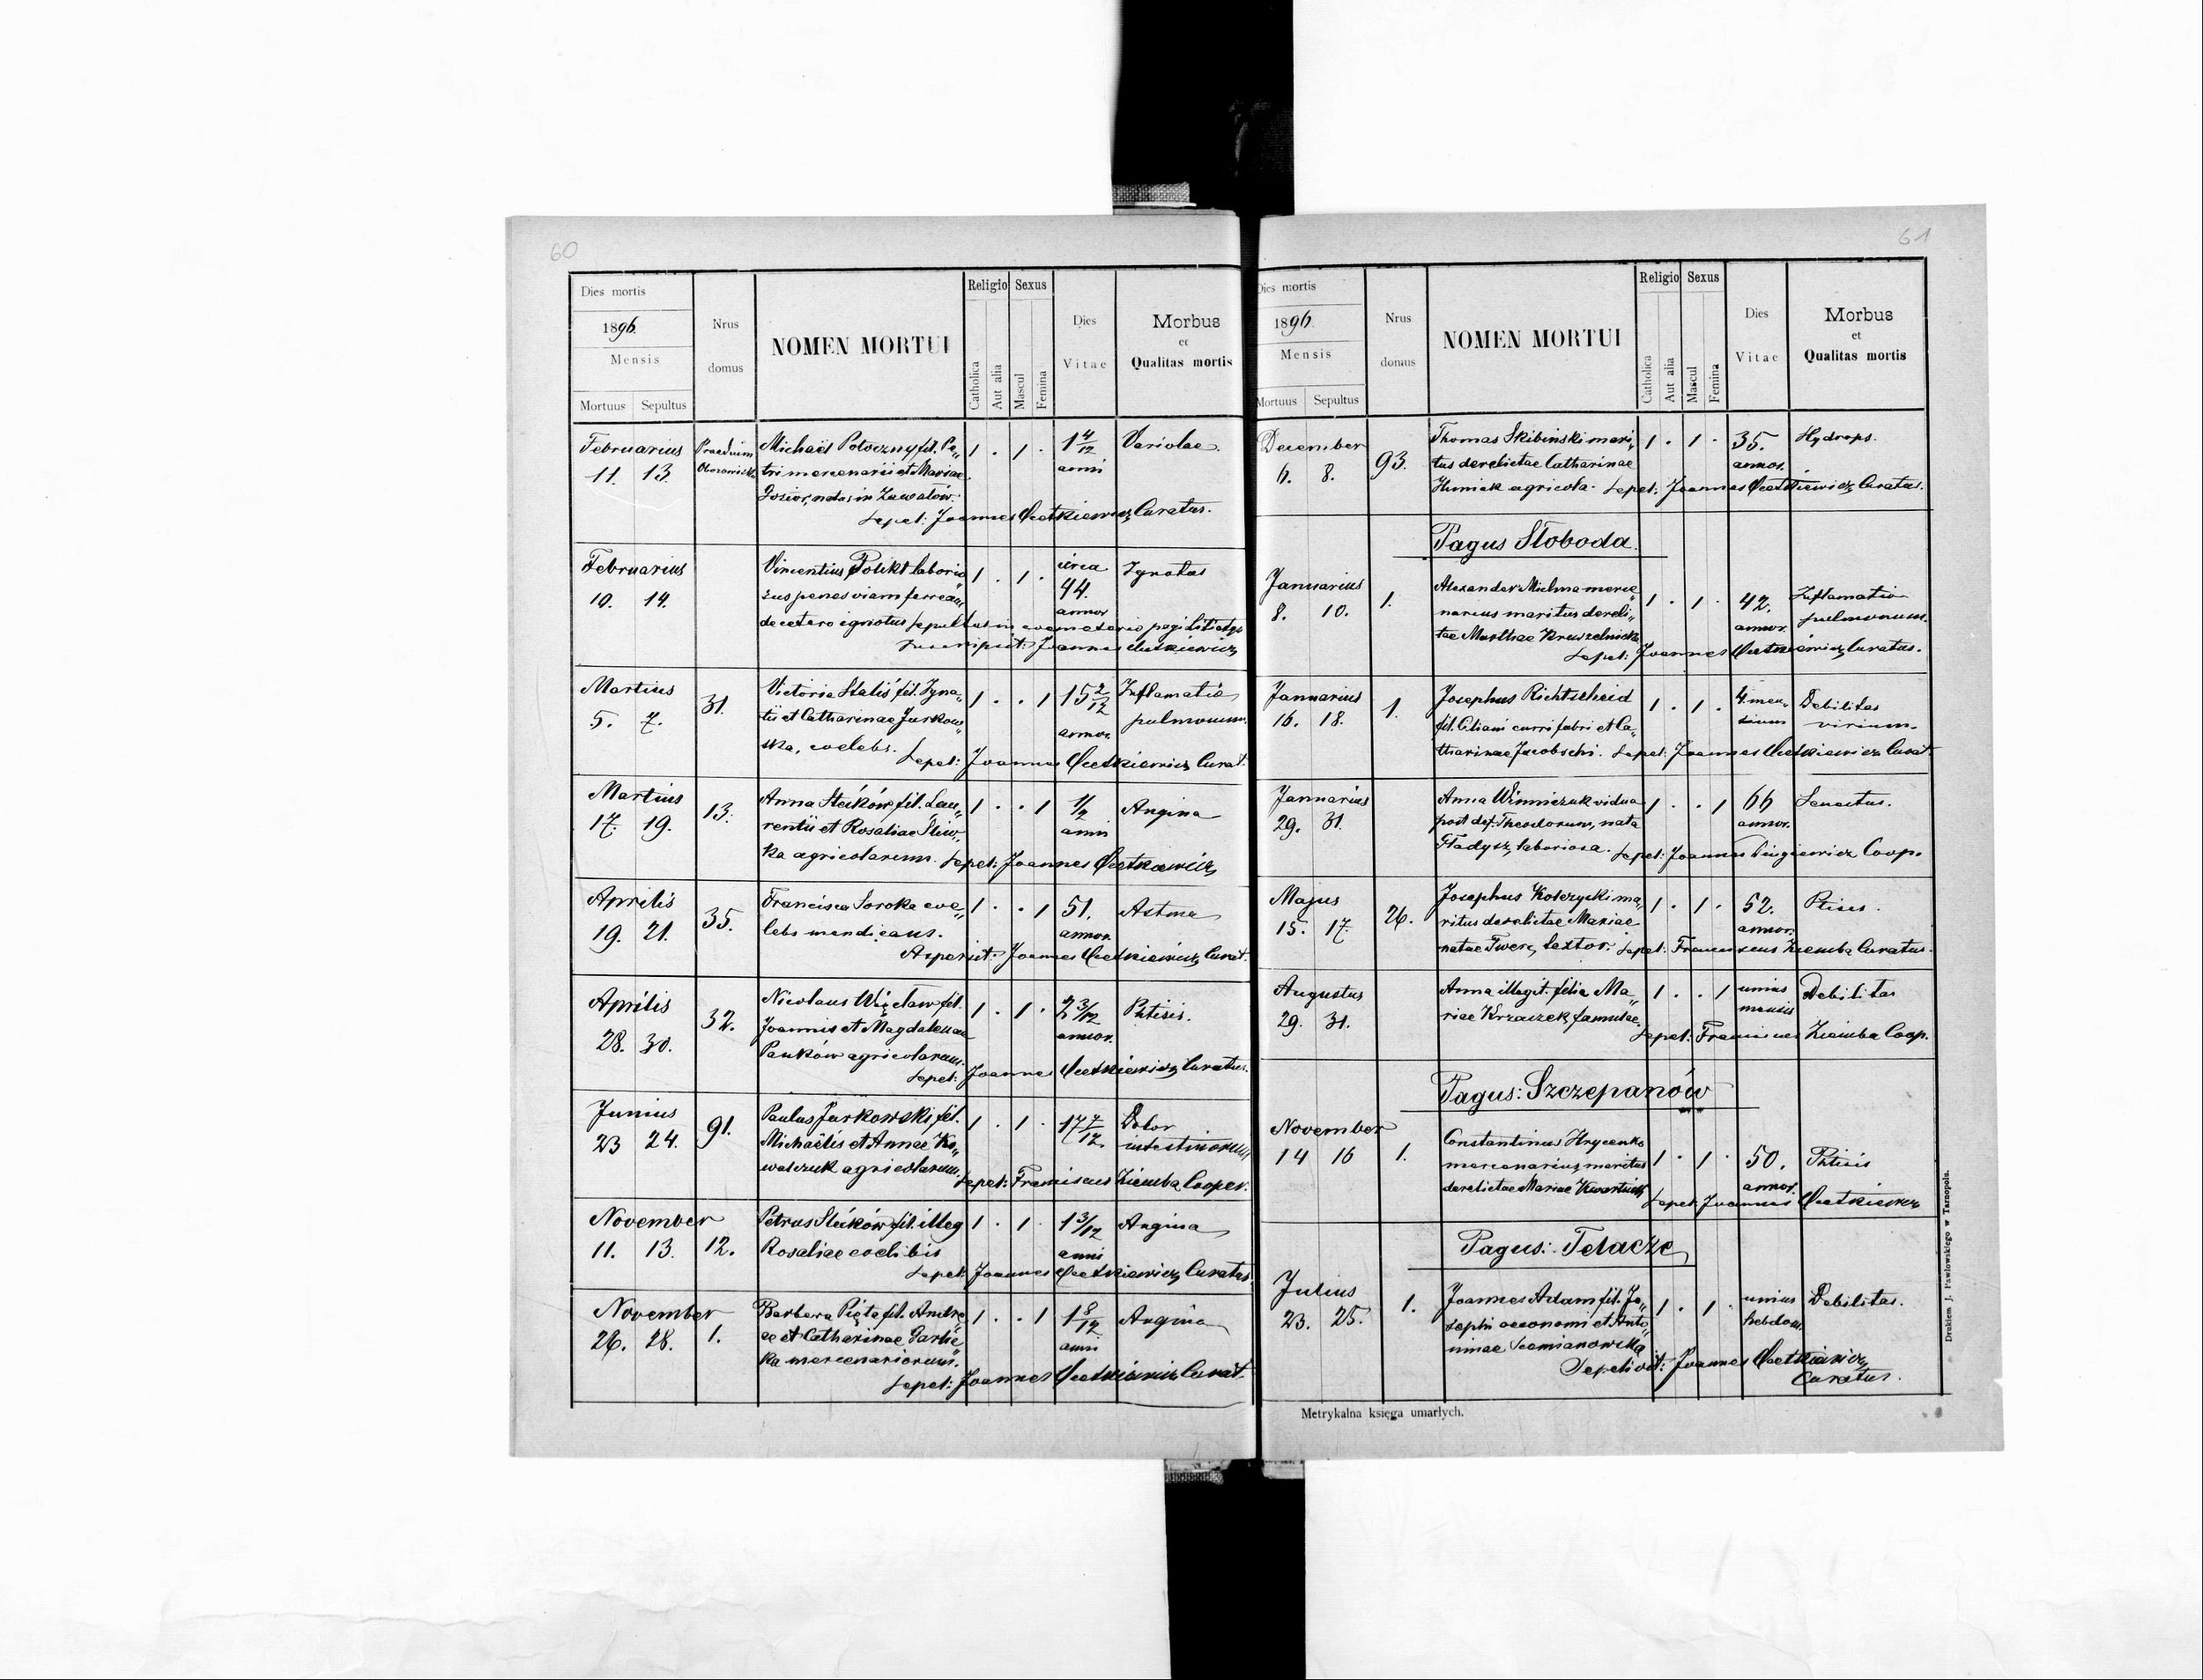 60
Dies mortis
1896
Mensis
Mortuus Sepultus
Nrus domus
NOMEN MORTUI
Religio
Catholica
Aut alia
Sexus
Mascul
Femina
Dies Vitae
Morbus
et
Qualitas mortis
Februarius Praedium Michaël Potoczny fil. Pe„ 1 . 1 . 1 4/12 Variolae.
11. 13. tri mercenarii et Mariae anni
Gosior, natus in Zawałów.
Sepel: Joannes Octkiewicz Curatus.
Februarius Vincentius laborio„ 1 . 1 . circa Ignotus
10. 14. sus penes viam ferream 44.
annor
de cetero ignotus sepultus in coemeterio pagi
Joannes Octkiewicz
Martius 31. Victoria Staliś fil. Igna„ 1 . . 1 15 2/12 Inflamatio
5. 7. tii et Catharinae Jurkow„ annor. pulmonum.
ska, coelebs. Sepel: Joannes Octkiewicz Curat.
Martius 13. Anna Steików fil. Lau„ 1 . . 1 1/2 Angina
17. 19. rentii et Rosaliae Śliw„ anni
ka agricolarum. Sepel: Joannes Octkiewicz
Aprilis 35. Francisca Soroka coe„ 1 . . 1 51. Astma
19. 21. lebs mendicans. annor.
Aspersit: Joannes Octkiewicz Curat.
Aprilis 32. Nicolaus Więcław fil. 1 . 1 . 2 3/12 Phtisis.
28. 30. Joannis et Magdalenae annor.
Pańków agricolarum.
Sepel: Joannes Octkiewicz Curatus.
Junius 91. Paulus Jurkowski fil. 1 . 1 . 17 7/12 Dolor
23 24. Michaëlis et Annae Ko„ intestinorum
walczuk agricolarum.
Sepel: Franciscus Ziemba Cooper.
November 12. Petrus Steików fil. illeg 1 . 1 . 1 3/12 Angina
11. 13. Rosaliae coelibis anni
Sepel: Joannes Octkiewicz Curatus.
November 1. Barbara Pięta fil. Andre„ 1 . . 1 1 8/12 Angina
26. 28. ae et Catharinae Garlic„ anni
ka mercenariorum.
Sepel: Joannes Octkiewicz Curat.
61
Dies mortis
1896.
Mensis
Mortuus Sepultus
Nrus domus
NOMEN MORTUI
Religio
Catholica
Aut alia
Sexus
Mascul
Femina
Dies Vitae
Morbus
et
Qualitas mortis
December 93. Thomas Skibinski mari„ 1 . 1 . 35. Hydrops.
6. 8. tus derelictae Catharinae annor.
Huniak agricola. Sepel: Joannes Octkiewicz Curatus.
Pagus Słoboda.
Januarius 1. Alexander Michna merce„ 1 . 1 . 42. Inflamatio
8. 10. narius maritus dereli„ annor. pulmonum.
tae Marthae Kruszelnicka
Sepel: Joannes Octkiewicz Curatus.
Januarius 1. Josephus Richtscheid 1 . 1 . 4. men„ Debilitas
16. 18. fil. Ciliani curri fabri et Ca„ sium virium.
tharinae Jacobschi. Sepel: Joannes Octkiewicz Curat.
Januarius Anna Winniczuk vidua 1 . . 1 66 Senectus.
29. 31. post def. Theodorum, nata annor.
Gładysz, laboriosa. Sepel: Joannes Coop.
Majus 26. Josephus Kosczycki ma„ 1 . 1 . 52. Ptisis.
15. 17. ritus derelictae Mariae annor.
natae Twers, textor. Sepel: Franciscus Ziemba Curatus.
Augustus Anna illegit. filia Ma„ 1 . . 1 unius Debilitas
29. 31. riae Krzaczek, famulae. mensis
Sepel: Franciscus Ziemba Coop.
Pagus: Szczepanów
November 1. Constantinus Hrycenko 1 . 1 . 50. Phtisis
14 16 mercenarius, maritus annor.
derelictae Mariae
Sepel: Joannes Octkiewicz
Pagus: Telacze
Julius 1. Joannes Adam fil. Jo„ 1 . 1 . unius Debilitas.
23. 25. sephi oeconomi et Anto„ hebdom.
niae Siemianowska
Sepelivit: Joannes Octkiewicz
Curatus.
Metrykalna księga umarłych.
Drukiem J. Pawłowskiego w Tarnopolu.